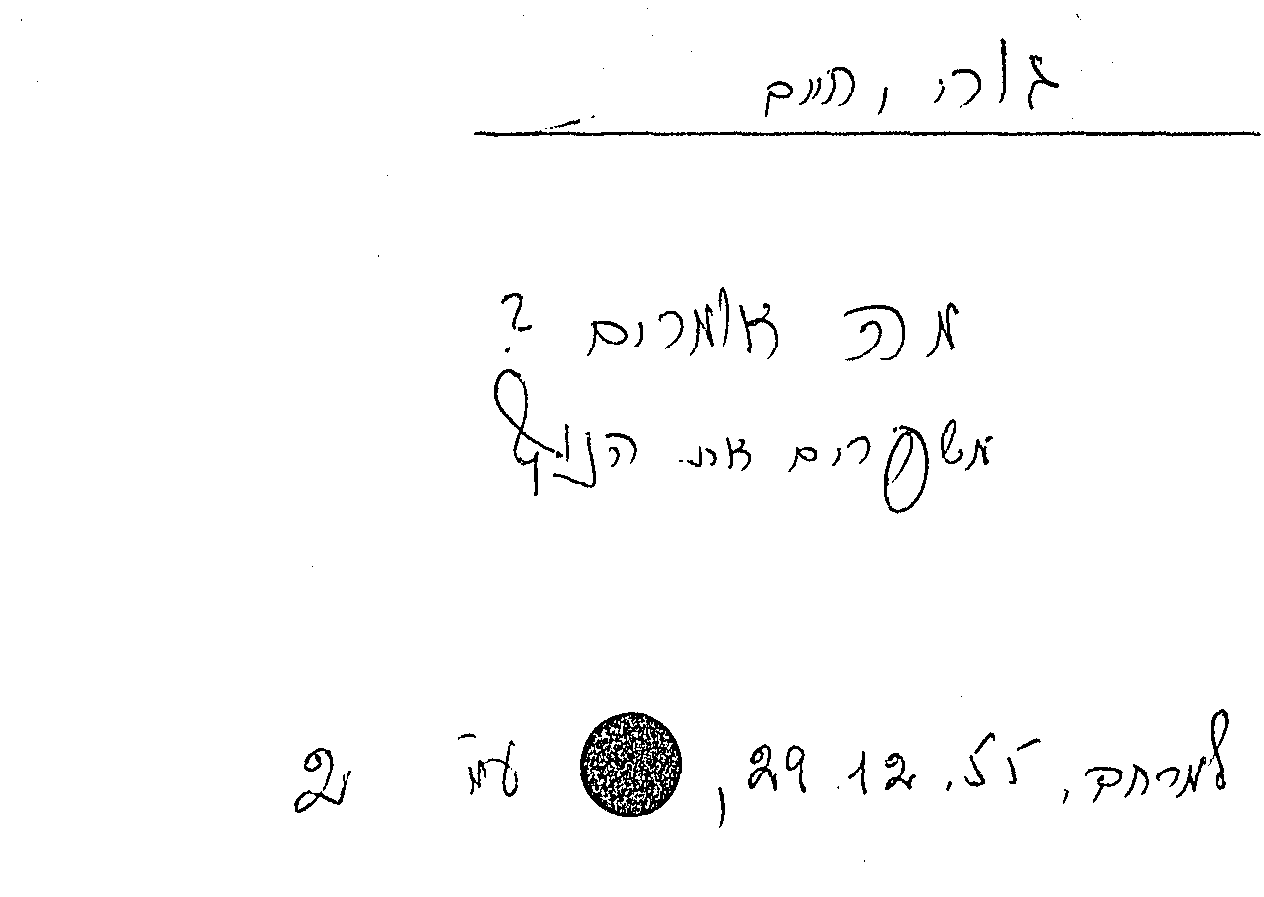 גורי, חיים
מה אומרים?
משפרים את הנוף
למרחב, 29.12.55, עמ' 2